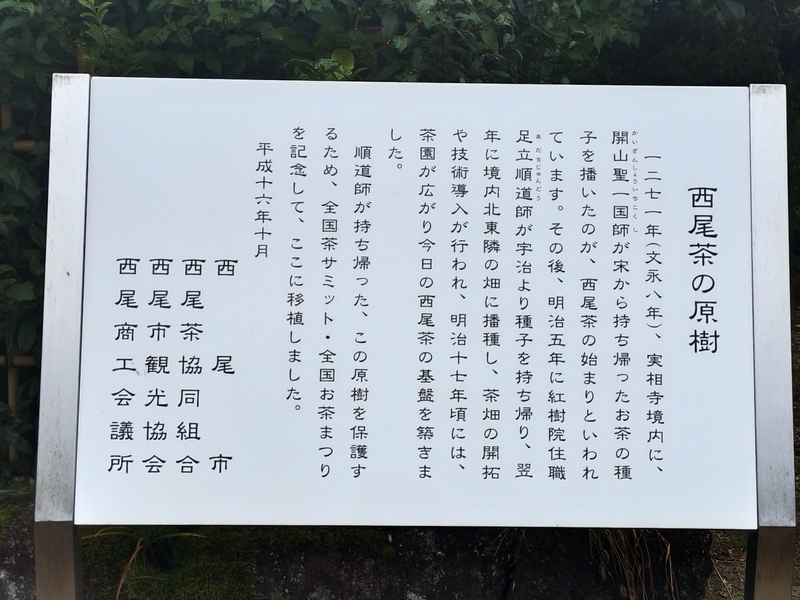 西尾茶の原樹
一二七一年(文永八年)、実相寺境内に、
かいざんしょういちこくし
開山聖一国師が宋から持ち帰ったお茶の種
子を播いたのが、西尾茶の始まりといわれ
ています。その後、明治五年に紅樹院住職
あだちじゅんどう
足立順道師が宇治より種子を持ち帰り、翌
年に境内北東隣の畑に播種し、茶畑の開拓
や技術導入が行われ、明治十七年頃には、
茶園が広がり今日の西尾茶の基盤を築きま
した。
順道師が持ち帰った、この原樹を保護す
るため、全国茶サミット・全国お茶まつり
を記念して、ここに移植しました。
平成十六年十月
西尾市
西尾茶協同組合
西尾市観光協会
西尾商工会議所